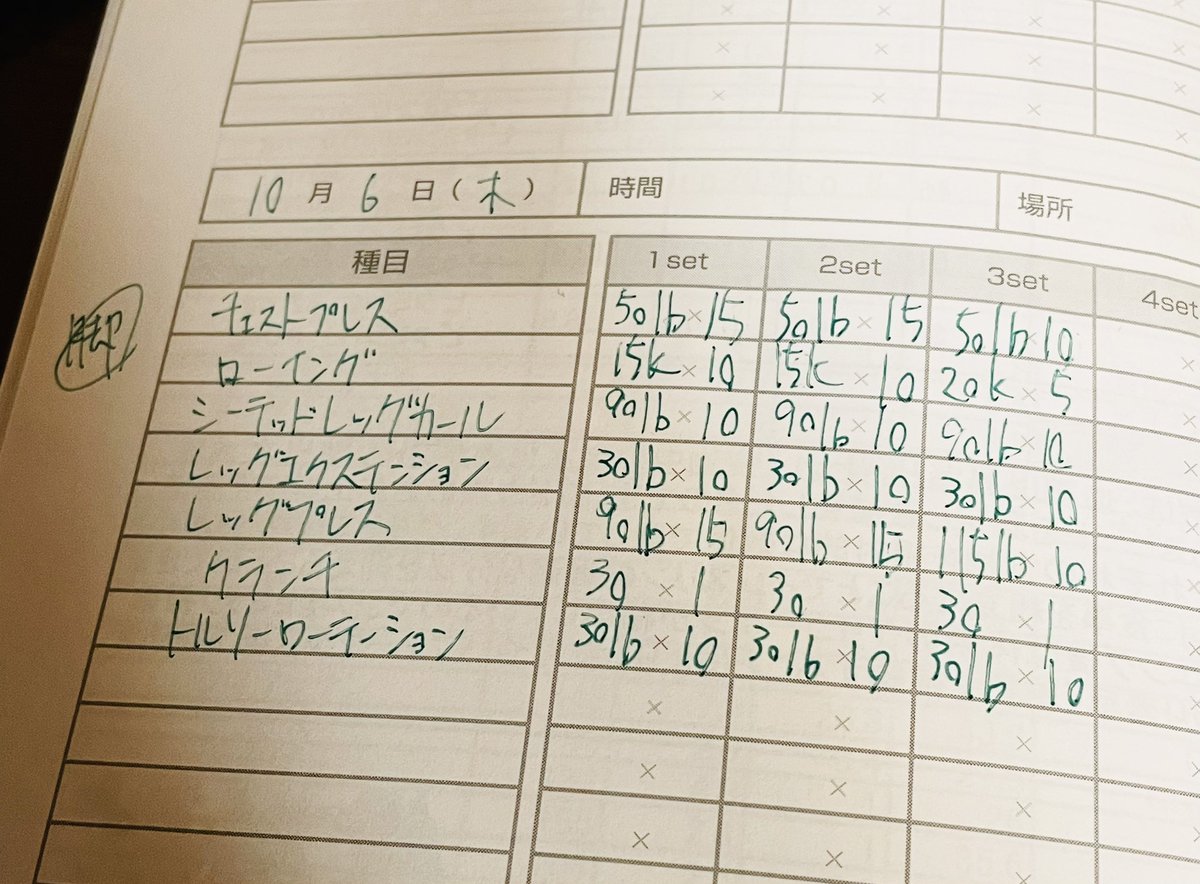 10月6日(木) 時間 場所
種目 1set 2set 3set 4set
脚
チェストプレス 50lb×15 50lb×15 50lb×10 ×
ローイング 15k×10 15k×10 20k×5 ×
シーテッドレッグカール 90lb×10 90lb×10 90lb×10 ×
レッグエクステンション 30lb×10 30lb×10 30lb×10
レッグプレス 90lb×15 90lb×15 115lb×10
クランチ 30×1 30×1 30×1
トルソーローテーション 30lb×10 30lb×10 30lb×10